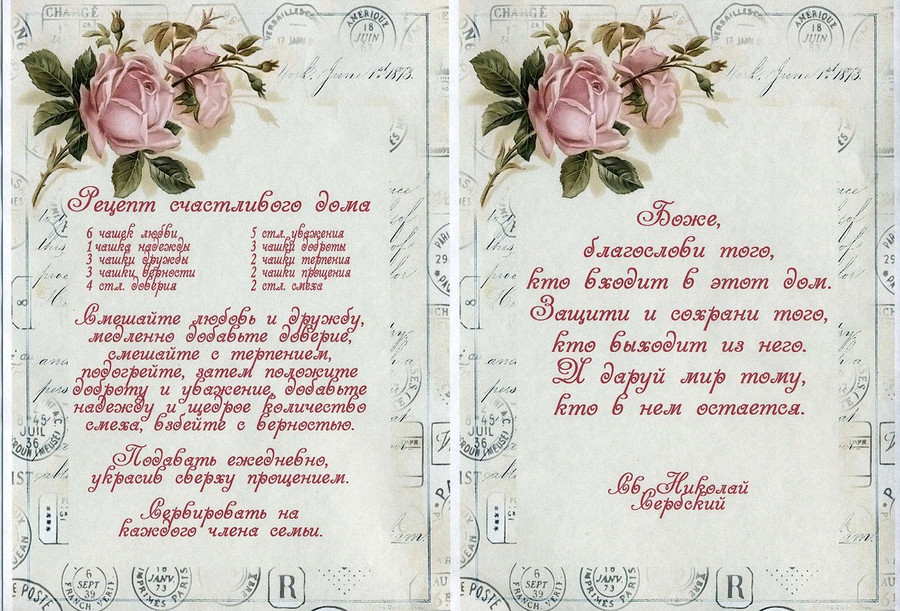 CHARGÉ
VERSAILLES
AMÉRIQUE
18
JUIN
York, June 1st 1873.
Рецепт счастливого дома
6 чашек любви
1 чашка надежды
3 чашки дружбы
3 чашки верности
4 стл. доверия
5 стл. уважения
3 чашки доброты
2 чашки терпения
2 чашки прощения
2 стл. смеха
Смешайте любовь и дружбу,
медленно добавьте доверие,
смешайте с терпением,
подогрейте, затем положите
доброту и уважение, добавьте
надежду и щедрое количество
смеха, взбейте с верностью.
Подавать ежедневно,
украсив сверху прощением.
Сервировать на
каждого члена семьи.
6
SEPT
39
FRANCH. VERIF
JANV.
73
IMPRIMES PARIS
R
E POSTE
CHARGÉ
VERSAILLES
AMÉRIQUE
18
JUIN
York, June 1st 1873.
Боже,
благослови того,
кто входит в этот дом.
Защити и сохрани того,
кто выходит из него.
И даруй мир тому,
кто в нем остается.
Св. Николай
Сербский
6
SEPT
39
FRANCH. VERIF
JANV.
73
IMPRIMES PARIS
R
E POSTE